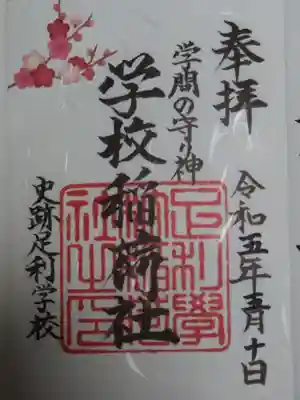 奉拝
令和五年五月十日
学問の守り神
学校稲荷社
史跡足利学校
足利學
校稲荷
社之印